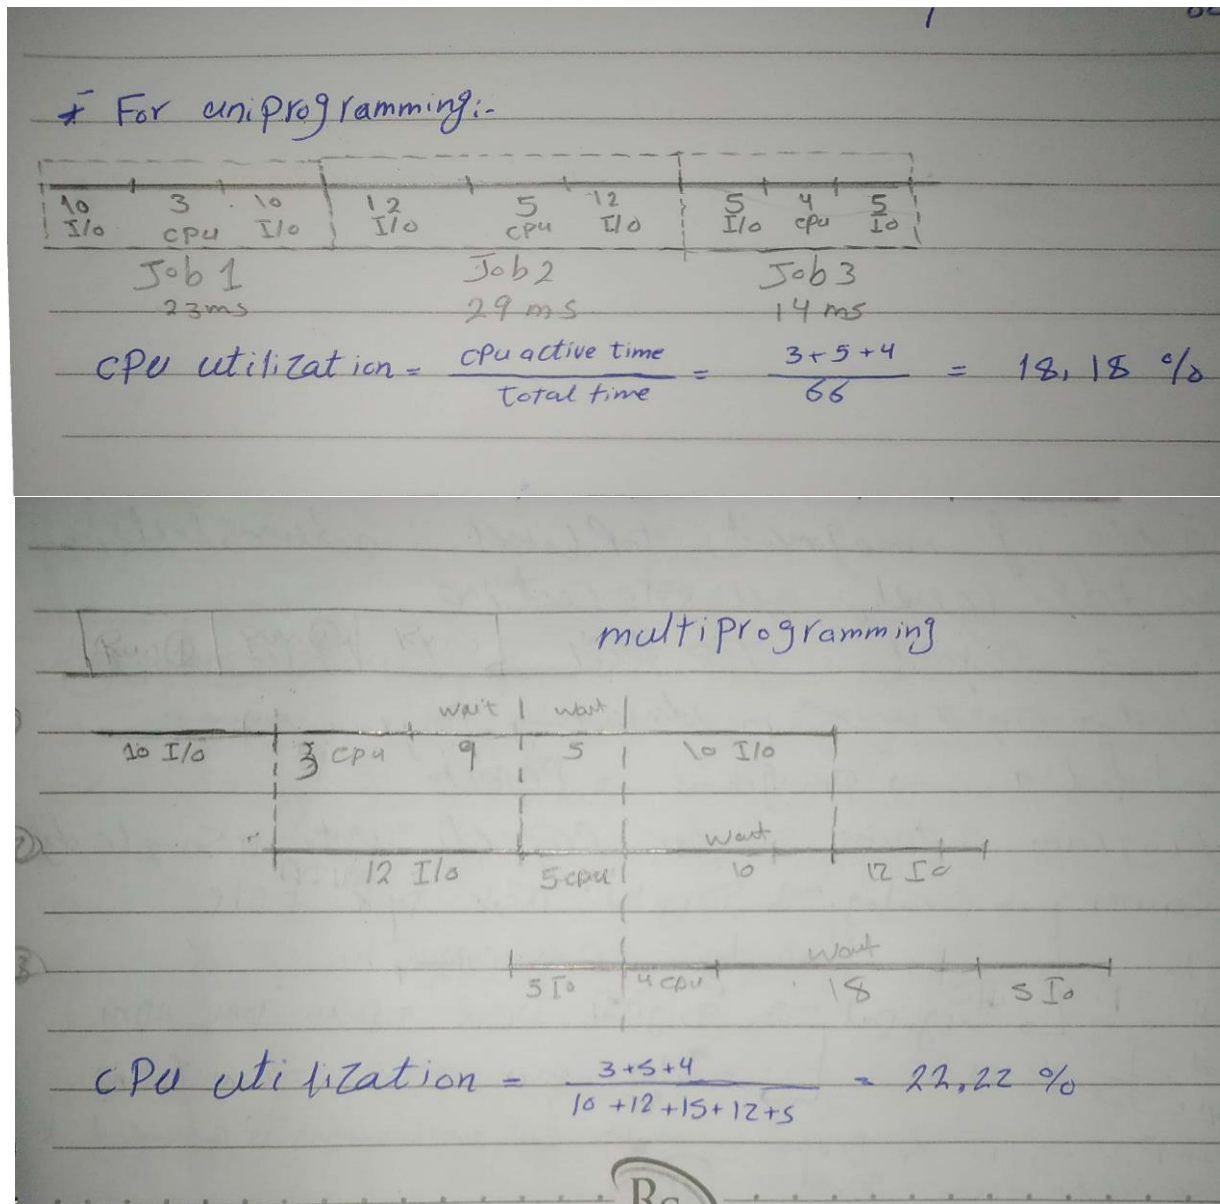 * For uniprogramming:-
10 3 10 12 5 12 5 4 5
I/o cpu I/o I/o cpu I/o I/o cpu Io
Job 1 Job 2 Job 3
23ms 29 ms 14 ms
CPU utilization = cpu active time / total time = 3+5+4 / 66 = 18,18 %
multiprogramming
wait wait
10 I/o 3 cpu 9 5 10 I/o
2) wait
12 I/o 5 cpu 10 12 Io
3) wait
5 Io 4 cpu 18 5 Io
CPU utilization = 3+5+4 / 10+12+15+12+5 = 22,22 %
Rc